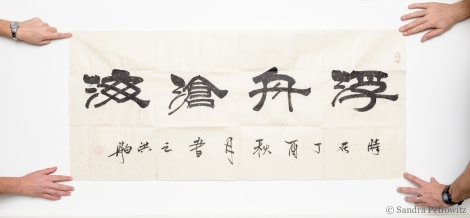 浮舟滄海
時在丁酉秋月書之洪
© Sandra Petrowitz